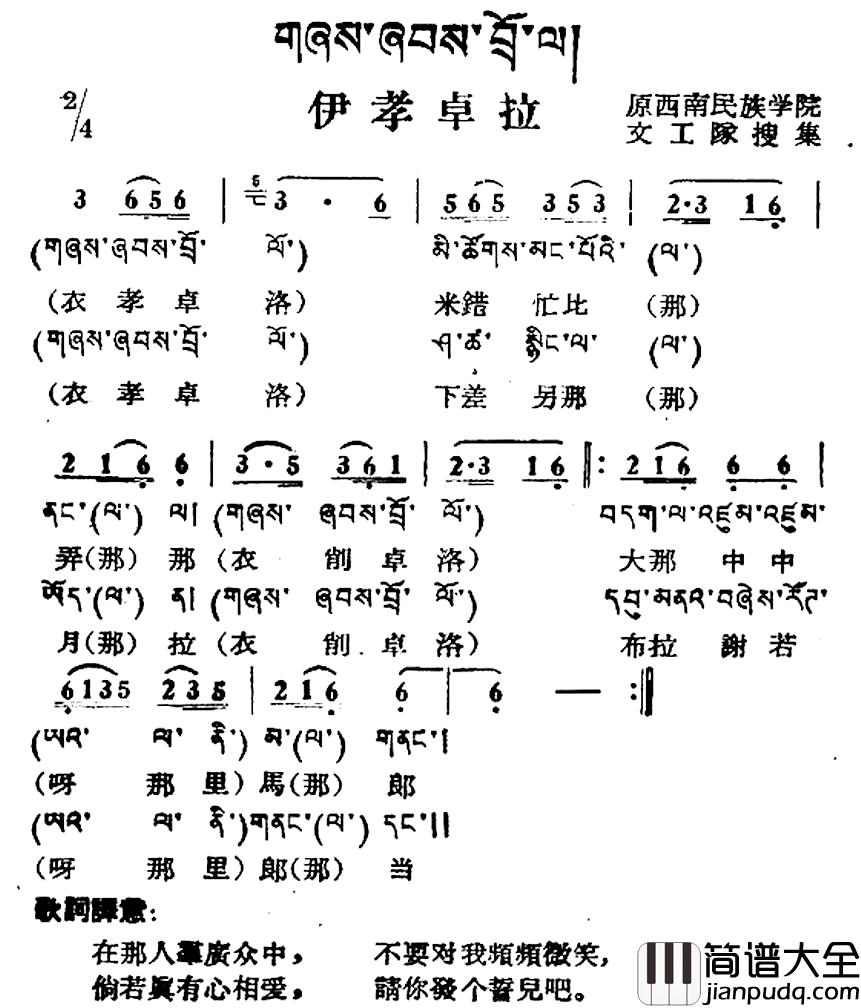 གཞས་ཞབས་བྲོ་ལ།
伊孝卓拉
2/4
原西南民族学院
文工隊搜集
3 6 5 6 | 3 · 6 | 5 6 5 3 5 3 | 2·3 1 6 |
(གཞས་ཞབས་བྲོ་ ལོ་) མི་ཚོགས་མང་པོའི་ (ལ་)
(衣孝卓洛) 米錯忙比(那)
(གཞས་ཞབས་བྲོ་ ལོ་) ཤ་ཚ་ སྙིང་ལ་ (ལ་)
(衣孝卓洛) 下差另那(那)
2 1 6 6 | 3·5 3 6 1 | 2·3 1 6 ‖: 2 1 6 6 6 |
ནང་(ལ་) ལ། (གཞས་ ཞབས་བྲོ་ ལོ་) བདག་ལ་འཛུམ་འཛུམ་
弄(那)那(衣削卓洛) 大那中中
ཡོད་(ལ་) ན། (གཞས་ ཞབས་བྲོ་ ལོ་) དབུ་མནའ་བཞེས་རོཊ་
月(那)拉(衣削卓洛) 布拉謝若
6 1 3 5 2 3 5 | 2 1 6 6 | 6 — :‖
(ཨའ་ ལ་ ནི་) མ་(ལ་) གནང་།
(呀那里)馬(那)郎
(ཨའ་ ལ་ ནི་)གནང་(ལ་) དང་།།
(呀那里)郎(那)当
歌詞譯意:
在那人羣廣众中, 不要对我頻頻微笑,
倘若眞有心相愛, 請你發个誓兒吧。
简谱大全
jianpudq.com